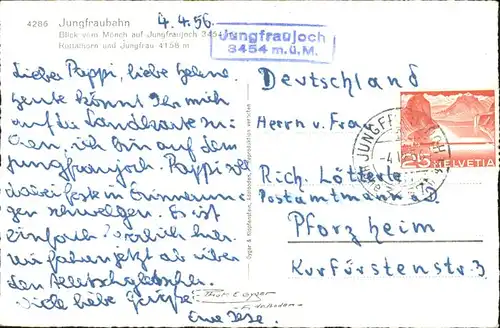 4286 Jungfraubahn
Blick vom Mönch auf Jungfraujoch 3454
Rottalhorn und Jungfrau 4158 m
4.4.56.
Jungfraujoch
3454 m.ü.M.
Lieber Pappi, liebe Helene
heute könnt Ihr mich
auf der Landkarte su-
chen, ich bin auf dem
Jungfraujoch. Pappi soll
dabei feste in Erinnerun-
gen schwelgen. Es ist
einfach herrlich hier.
Wir fahren jetzt ab über
den Aletschgletscher.
Viele liebe Grüsse
Eure
Deutschland
Herrn u. Frau
Rich. Lötterle
Postamtmann a.D.
Pforzheim
Kurfürstenstr. 3
JUNGFRAUJOCH
25
HELVETIA